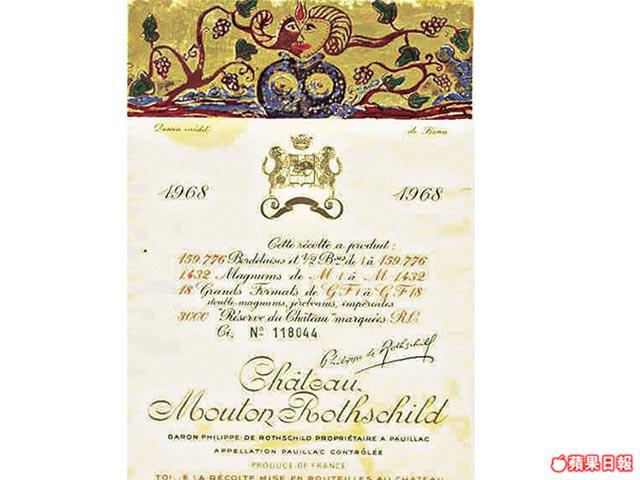 Dessin inédit de Bona
1968 1968
Cette récolte a produit:
159.776 Bordelaises et 1/2 Bses de 1 à 159.776
1.432 Magnums de M 1 à M 1.432
18 Grands Formats de G F 1 à G F 18
double-magnums, jeroboams, impériales
3000 "Réserve du Château" marquées R.C.
Ci, Nº 118044
Philippe de Rothschild
Château
Mouton Rothschild
BARON PHILIPPE DE ROTHSCHILD PROPRIÉTAIRE A PAUILLAC
APPELLATION PAUILLAC CONTRÔLÉE
PRODUCE OF FRANCE
LA RÉCOLTE MISE EN BOUTEILLES AU CHÂTEAU
蘋果日報